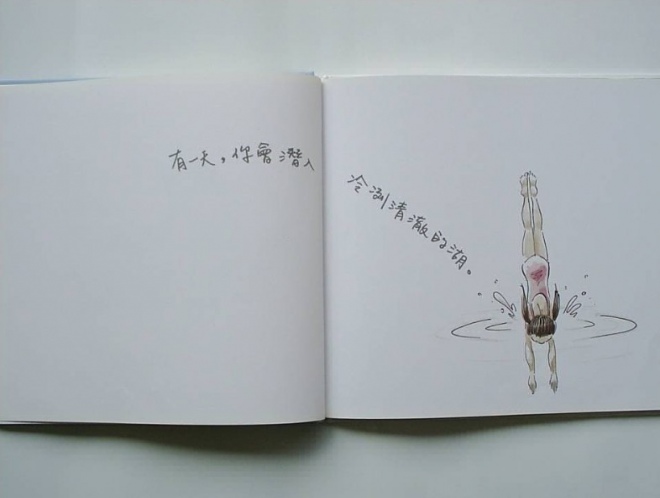 有一天，你會潛入
冷冽清澈的湖。